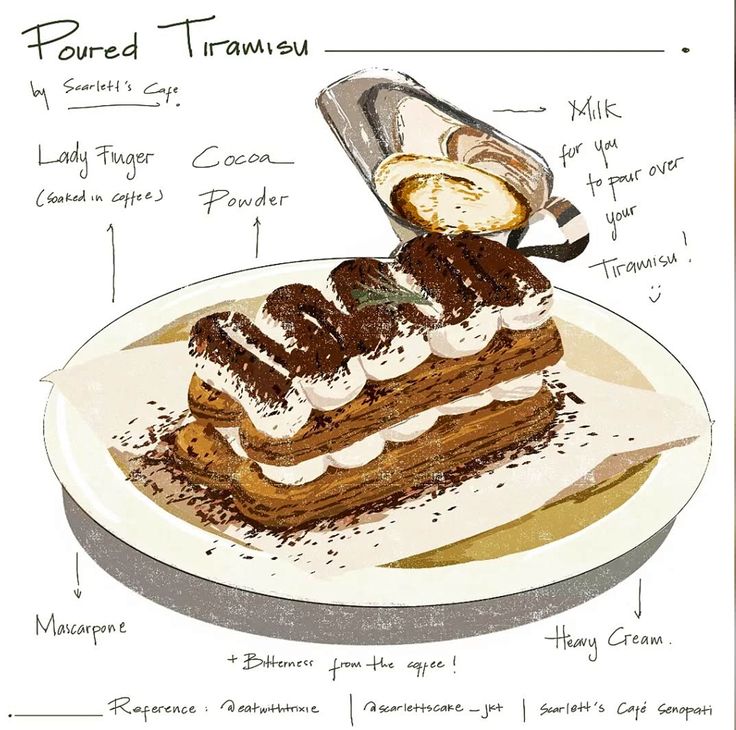 Poured Tiramisu
by Scarlett's Cafe
Lady Finger
(soaked in coffee)
Cocoa
Powder
Milk
for you
to pour over
your
Tiramisu!
Mascarpone
Heavy Cream.
+ Bitterness from the coffee!
Reference : @eatwithtrixie | @scarlettscake_jkt | Scarlett's Café Senopati